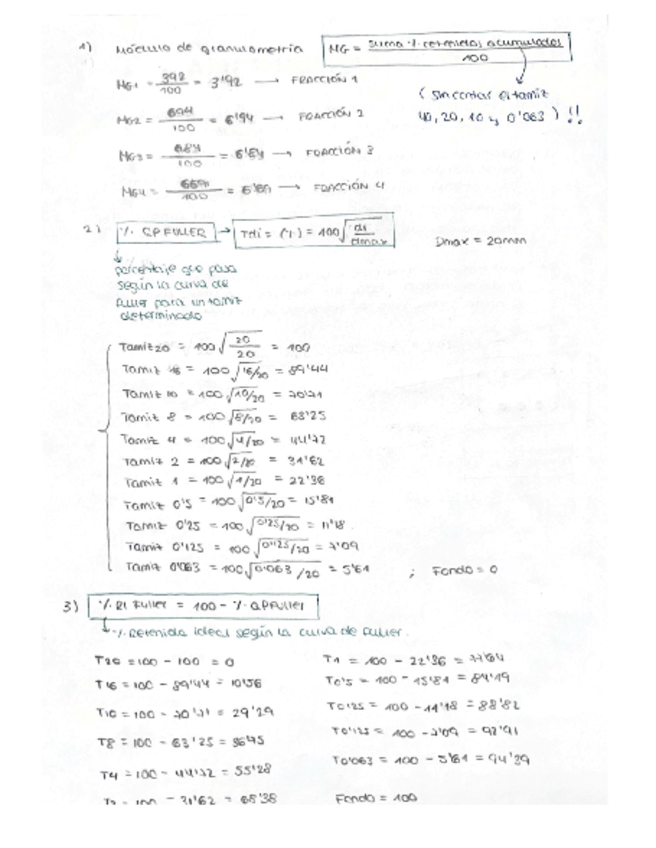 1) Módulo de granulometría MG = suma % retenidos acumulados / 100
MG1 = 392/100 = 3'92 → FRACCIÓN 1
(sin contar el tamiz
MG2 = 694/100 = 6'94 → FRACCIÓN 2
40, 20, 10 y 0'063) !!
MG3 = 684/100 = 6'84 → FRACCIÓN 3
MG4 = /100 = → FRACCIÓN 4
2) % QP FULLER → Tdi = (%) = 100 √(di/dmax) Dmax = 20mm
porcentaje que pasa
según la curva de
fuller para un tamiz
determinado
Tamiz 20 = 100 √(20/20) = 100
Tamiz 16 = 100 √16/20 = 89'44
Tamiz 10 = 100 √10/20 = 70'71
Tamiz 8 = 100 √8/20 = 63'25
Tamiz 4 = 100 √4/20 = 44'72
Tamiz 2 = 100 √2/20 = 31'62
Tamiz 1 = 100 √1/20 = 22'36
Tamiz 0'5 = 100 √0'5/20 = 15'81
Tamiz 0'25 = 100 √0'25/20 = 11'18
Tamiz 0'125 = 100 √0'125/20 = 7'09
Tamiz 0'063 = 100 √0'063/20 = 5'61 ; Fondo = 0
3) % RI Fuller = 100 - % QP FULLER
% Retenido ideal según la curva de fuller.
T20 = 100 - 100 = 0
T16 = 100 - 89'44 = 10'56
T10 = 100 - 70'71 = 29'29
T8 = 100 - 63'25 = 36'75
T4 = 100 - 44'72 = 55'28
T2 = 100 - 31'62 = 68'38
T1 = 100 - 22'36 = 77'64
T0'5 = 100 - 15'81 = 84'19
T0'25 = 100 - 11'18 = 88'82
T0'125 = 100 - 7'09 = 92'91
T0'063 = 100 - 5'61 = 94'39
Fondo = 100